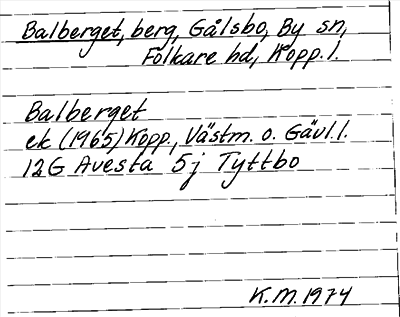 Balberget, berg, Gålsbo, By sn,
Folkare hd, Kopp. l.
Balberget
ek (1965) Kopp., Västm. o. Gävl. l.
12G Avesta 5j Tyttbo
K.M. 1974